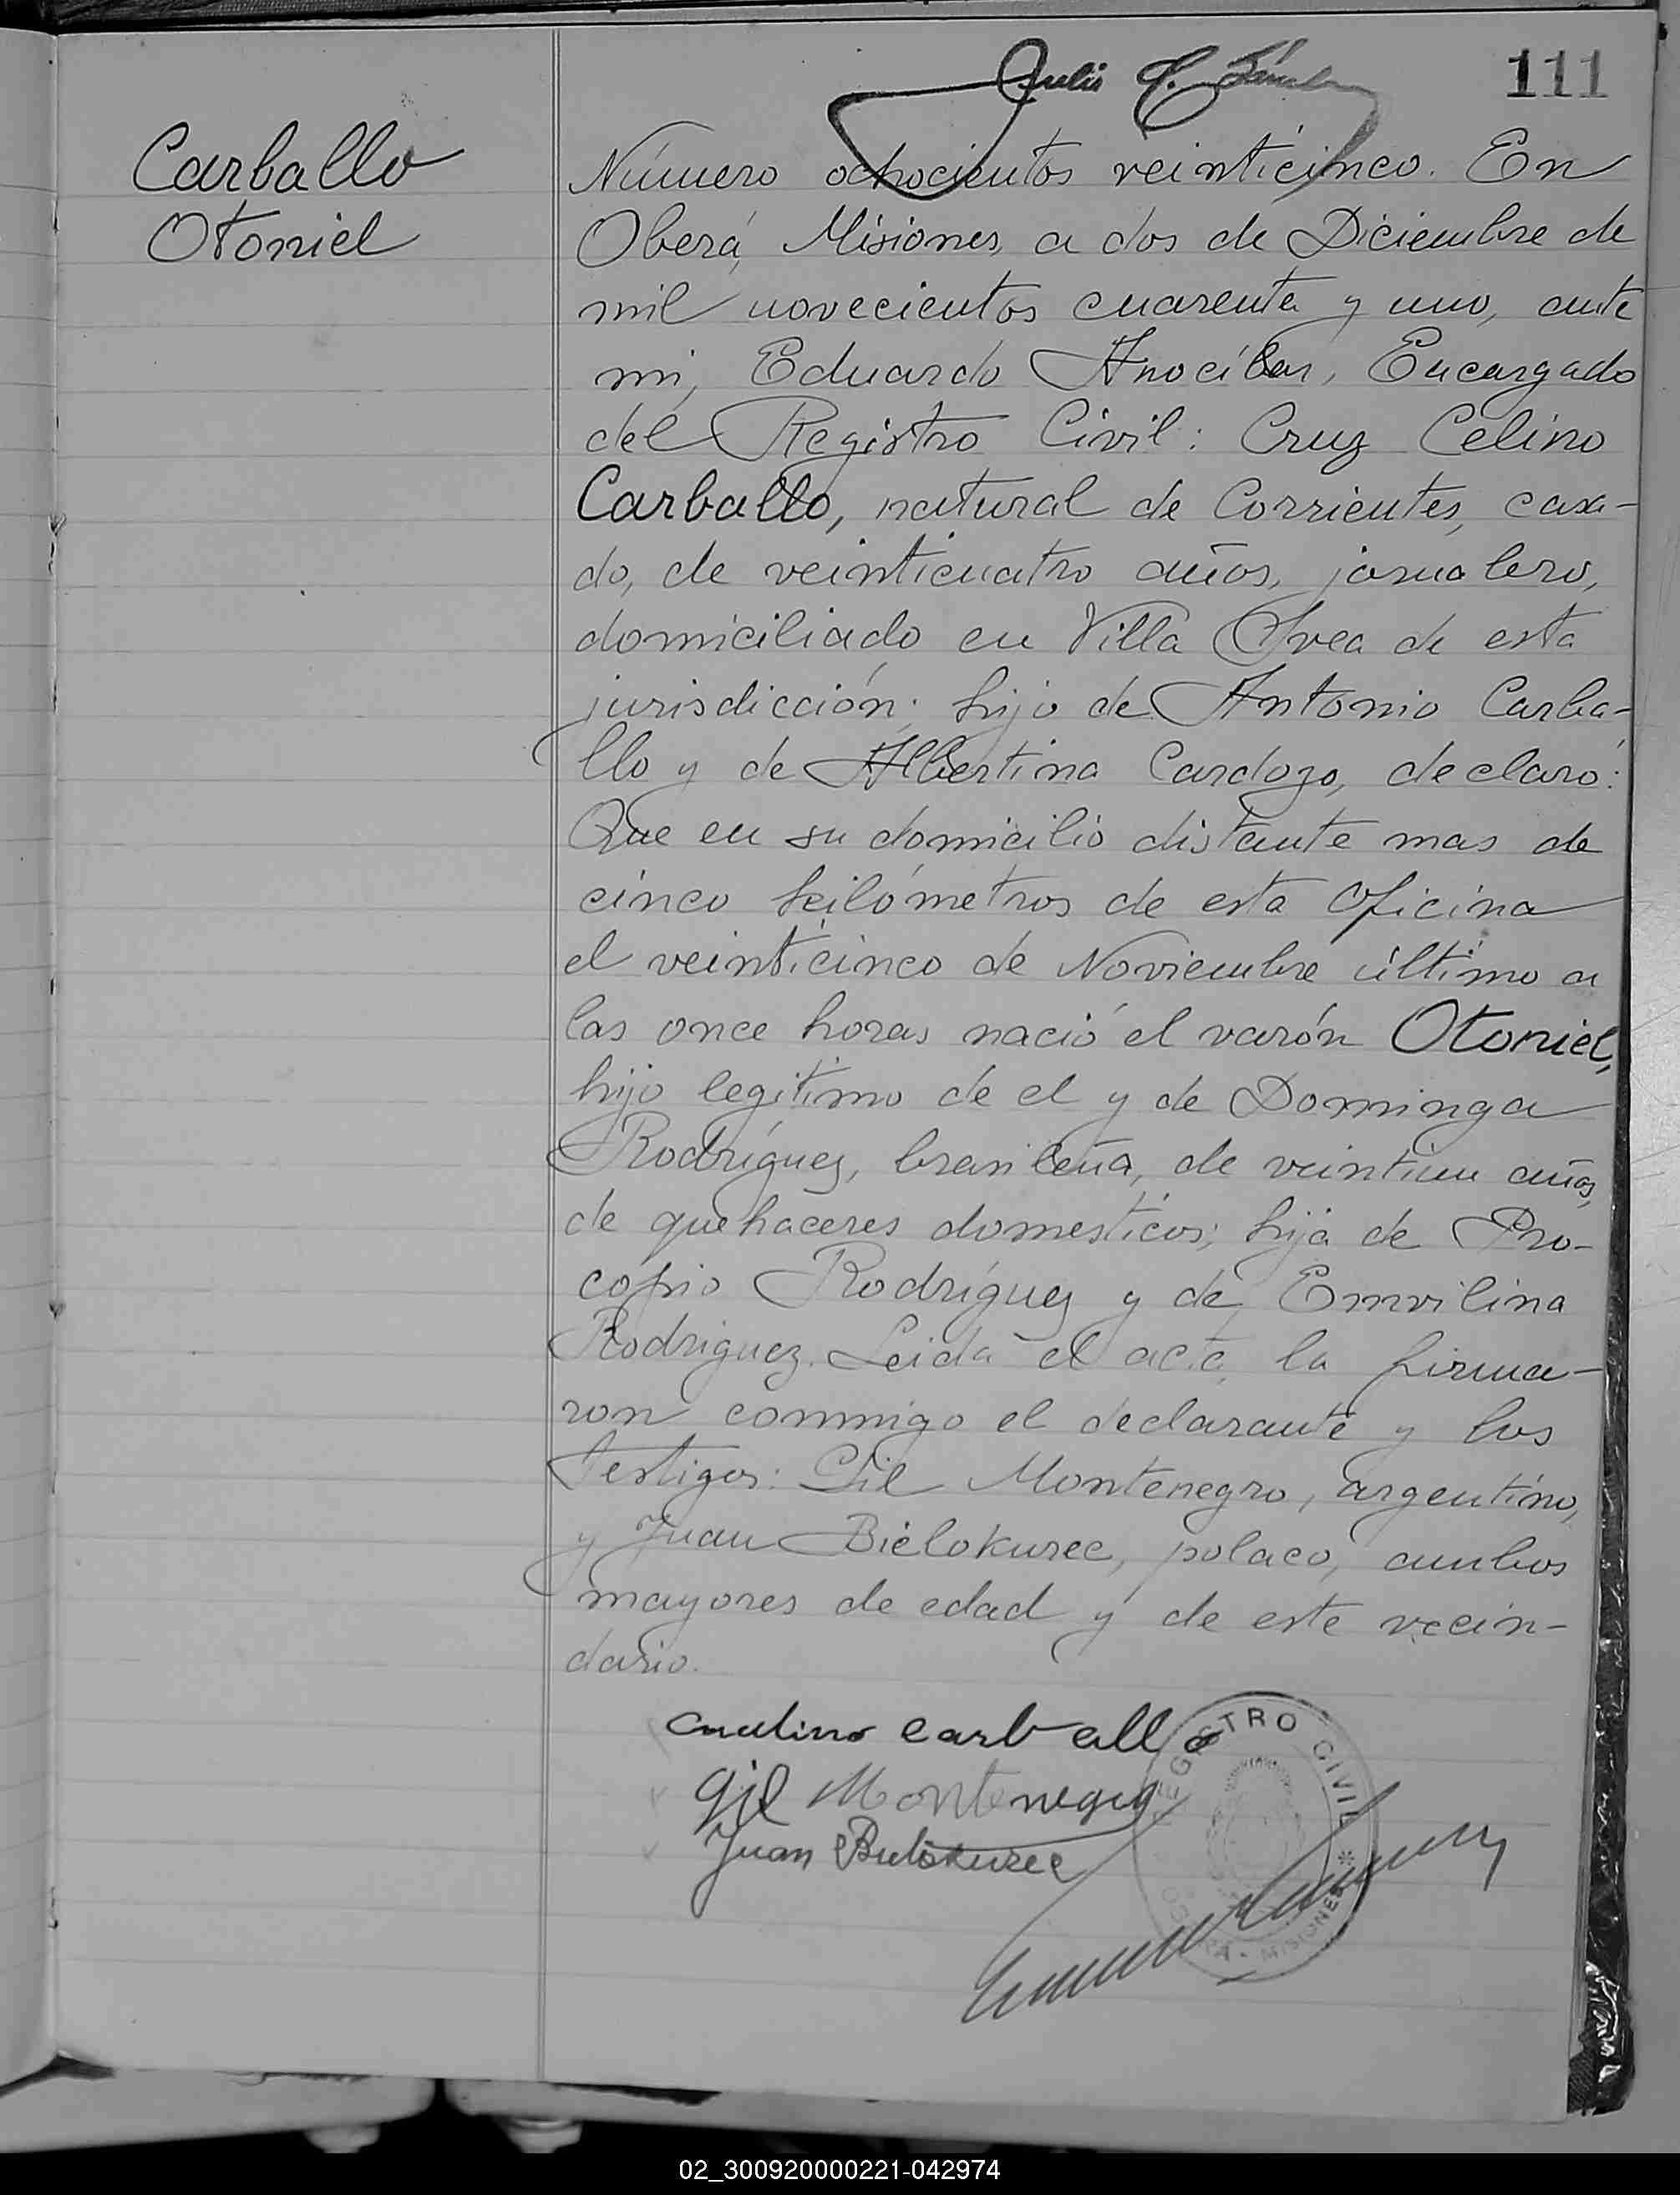 111
Carballo
Otoniel
Número ochocientos veinticinco. En
Oberá, Misiones, a dos de Diciembre de
mil novecientos cuarenta y uno, ante
mi, Eduardo Anocíbar, Encargado
del Registro Civil: Cruz Celino
Carballo, natural de Corrientes, casa-
do, de veinticuatro años, jornalero,
domiciliado en Villa Svea de esta
jurisdicción; hijo de Antonio Carba-
llo y de Albertina Cardozo, declaró:
Que en su domicilio distante mas de
cinco kilómetros de esta Oficina
el veinticinco de Noviembre último a
las once horas nació el varón Otoniel,
hijo legitimo de el y de Dominga
Rodríguez, brasileña, de veintiun años,
de quehaceres domesticos; hija de Pro-
copio Rodríguez y de Emvilina
Rodriguez. Leida el acta, la firma-
ron conmigo el declarante y los
testigos: Gil Montenegro, argentino,
y Juan Bielokurec, polaco, ambos
mayores de edad y de este vecin-
dario.
carballo
Gil Montenegro
Juan Bielokurec
REGISTRO CIVIL
MISIONES
02_300920000221-042974